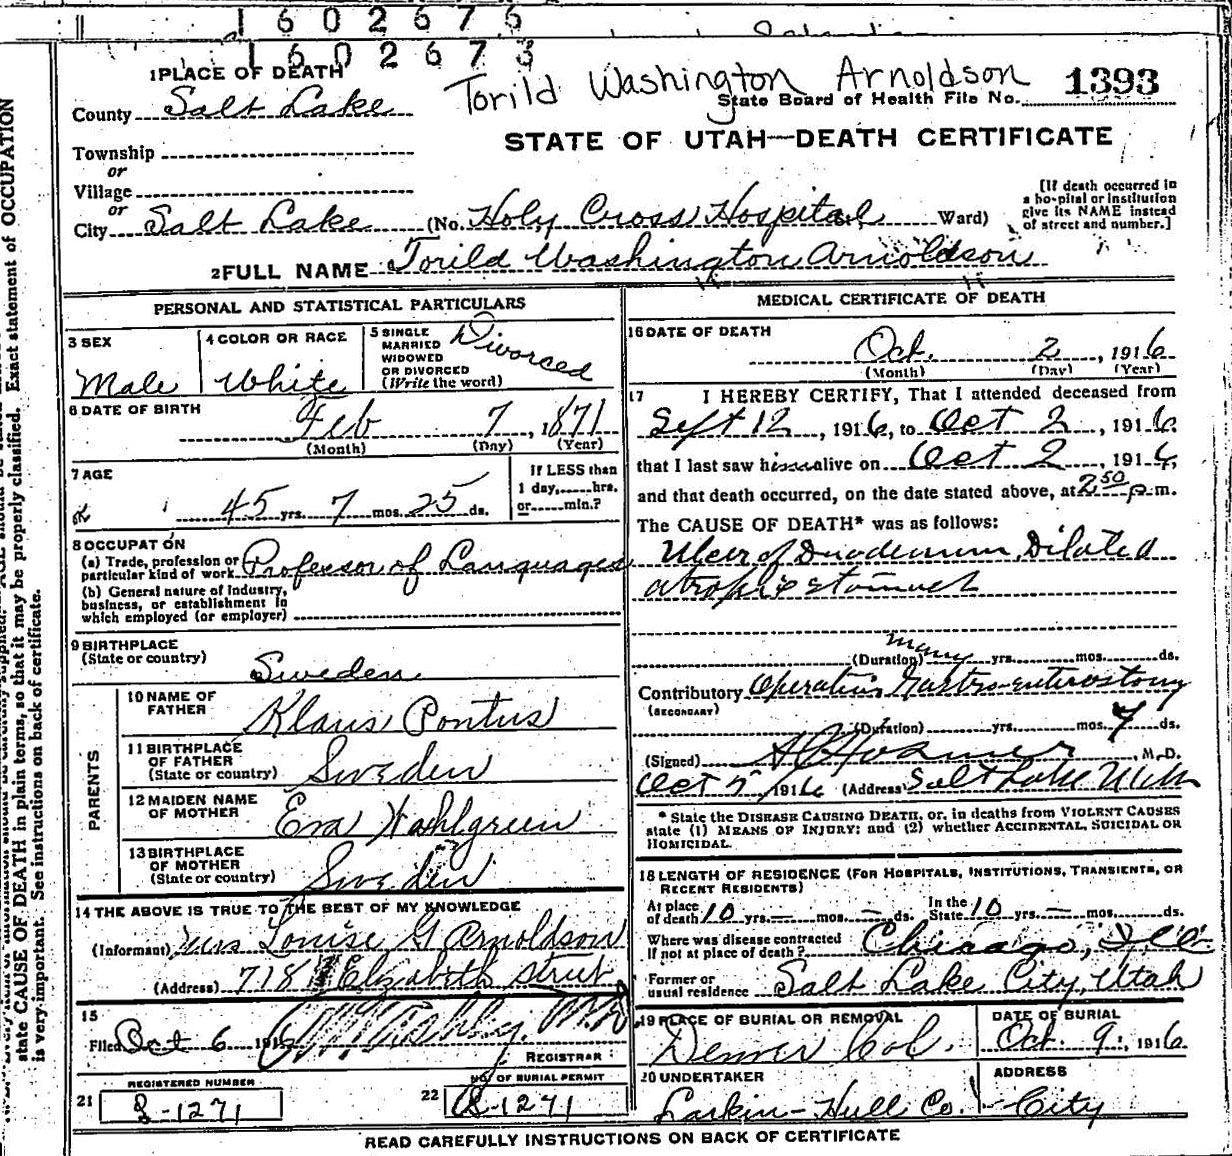 1602676
1602673
Torild Washington Arnoldson
1 PLACE OF DEATH
County Salt Lake
State Board of Health File No. 1393
STATE OF UTAH—DEATH CERTIFICATE
Township
or
Village
or
City Salt Lake (No. Holy Cross Hospital, Ward)
[If death occurred in a hospital or institution give its NAME instead of street and number.]
2 FULL NAME Torild Washington Arnoldson
PERSONAL AND STATISTICAL PARTICULARS
3 SEX Male
4 COLOR OR RACE White
5 SINGLE MARRIED WIDOWED OR DIVORCED (Write the word) Divorced
6 DATE OF BIRTH Feb 7, 1871
(Month) (Day) (Year)
7 AGE 45 yrs. 7 mos. 25 ds.
If LESS than 1 day,......hrs. or......min.?
8 OCCUPATION
(a) Trade, profession or particular kind of work Professor of Languages
(b) General nature of industry, business, or establishment in which employed (or employer)
9 BIRTHPLACE
(State or country) Sweden
PARENTS
10 NAME OF FATHER Klaus Pontus
11 BIRTHPLACE OF FATHER (State or country) Sweden
12 MAIDEN NAME OF MOTHER Eva Wahlgreen
13 BIRTHPLACE OF MOTHER (State or country) Sweden
14 THE ABOVE IS TRUE TO THE BEST OF MY KNOWLEDGE
(Informant) Mrs Louise G Arnoldson
(Address) 718 Elizabeth street
15
Filed Oct 6 1916
REGISTRAR
21 REGISTERED NUMBER
22 NO. OF BURIAL PERMIT
MEDICAL CERTIFICATE OF DEATH
16 DATE OF DEATH
Oct. 2, 1916
(Month) (Day) (Year)
17 I HEREBY CERTIFY, That I attended deceased from
Sept 12, 1916, to Oct 2, 1916.
that I last saw him alive on Oct 2, 1916,
and that death occurred, on the date stated above, at 2 50 p.m.
The CAUSE OF DEATH* was as follows:
Ulcer of Duodenum, Dilated
stomach
(Duration) many yrs. mos. ds.
Contributory Operation Gastro-enterostomy
(SECONDARY)
(Duration) yrs. mos. ds.
(Signed) M.D.
Oct 1916 (Address) Salt Lake Utah
* State the DISEASE CAUSING DEATH, or, in deaths from VIOLENT CAUSES
state (1) MEANS OF INJURY; and (2) whether ACCIDENTAL, SUICIDAL OR
HOMICIDAL.
18 LENGTH OF RESIDENCE (FOR HOSPITALS, INSTITUTIONS, TRANSIENTS, OR
RECENT RESIDENTS)
At place of death 10 yrs. — mos. — ds. In the State 10 yrs. — mos. ds.
Where was disease contracted If not at place of death? Chicago, Ill.
Former or usual residence Salt Lake City, Utah
19 PLACE OF BURIAL OR REMOVAL Denver Col.
DATE OF BURIAL Oct. 9, 1916.
20 UNDERTAKER Larkin-Hull Co.
ADDRESS City
READ CAREFULLY INSTRUCTIONS ON BACK OF CERTIFICATE
state CAUSE OF DEATH in plain terms, so that it may be properly classified. Exact statement of OCCUPATION
is very important. See instructions on back of certificate.